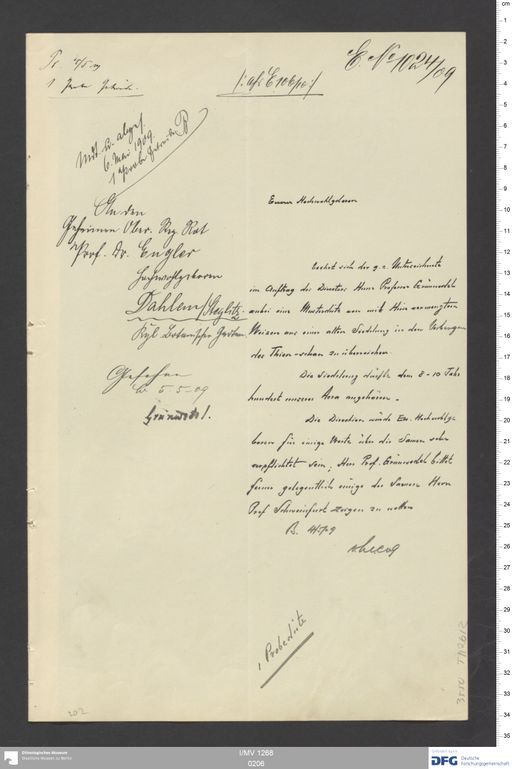 E. No 1024/09
6. Mai 1909.
An den
Geheimen Ober. Reg. Rat
Prof. Dr. Engler
Hochwohlgeboren
Dahlem/Steglitz.
Kgl. Botanischer Garten
Gesehen
5-5-09
Grünwedel.
Euerer Hochwohlgeboren
beehrt sich der g. z. Unterzeichnete
im Auftrag des Director Herrn Professor Grünwedel
anbei eine Musterdüte von mit Hirse vermengtem
Weizen aus einer alten Siedelung in den
des Thien-schan zu überreichen.
Die Siedelung dürfte dem 8-10 Jahr
hundert unserer Aera angehören.
Die Direction würde Ew. Hochwohlge
boren für einige Worte über die Samen sehr
verpflichtet sein; Herr Prof. Grünwedel bittet
ferner gelegentlich einige der Samen Herrn
Prof. Schweinfurt zeigen zu wollen
B. 4/5 09
vLecoq
1 Probedüte
202
Ethnologisches Museum
Staatliche Museen zu Berlin
I/MV 1268
0206
DFG Deutsche
Forschungsgemeinschaft